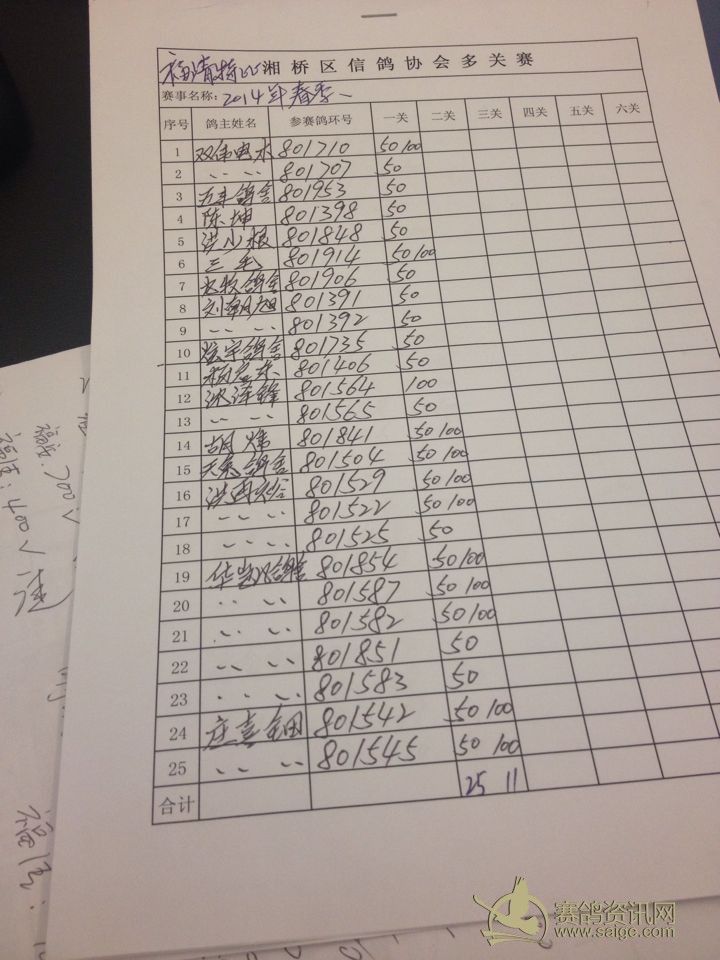 福清特比湘桥区信鸽协会多关赛
赛事名称：2014年春季一
序号 鸽主姓名 参赛鸽环号 一关 二关 三关 四关 五关 六关
1 双伍电水 801710 50 100
2 〃 〃 801707 50
3 五丰鸽舍 801953 50
4 陈坤 801398 50
5 洪少根 801848 50
6 三毛 801914 50 100
7 鸽舍 801906 50
8 刘朝旭 801391 50
9 〃 〃 801392 50
10 宏宇鸽舍 801735 50
11 801406 50
12 沈泽锋 801564 100
13 〃 〃 801565 50
14 胡炜 801841 50 100
15 鸽舍 801504 50 100
16 801529 50 100
17 〃 〃 801522 50 100
18 〃 〃 801525 50
19 鸽舍 801854 50 100
20 〃 〃 801587 50 100
21 〃 〃 801582 50 100
22 〃 〃 801851 50
23 〃 〃 801583 50
24 庄喜钿 801542 50 100
25 〃 〃 801545 50 100
合计 25 11
赛鸽资讯网
www.saigc.com